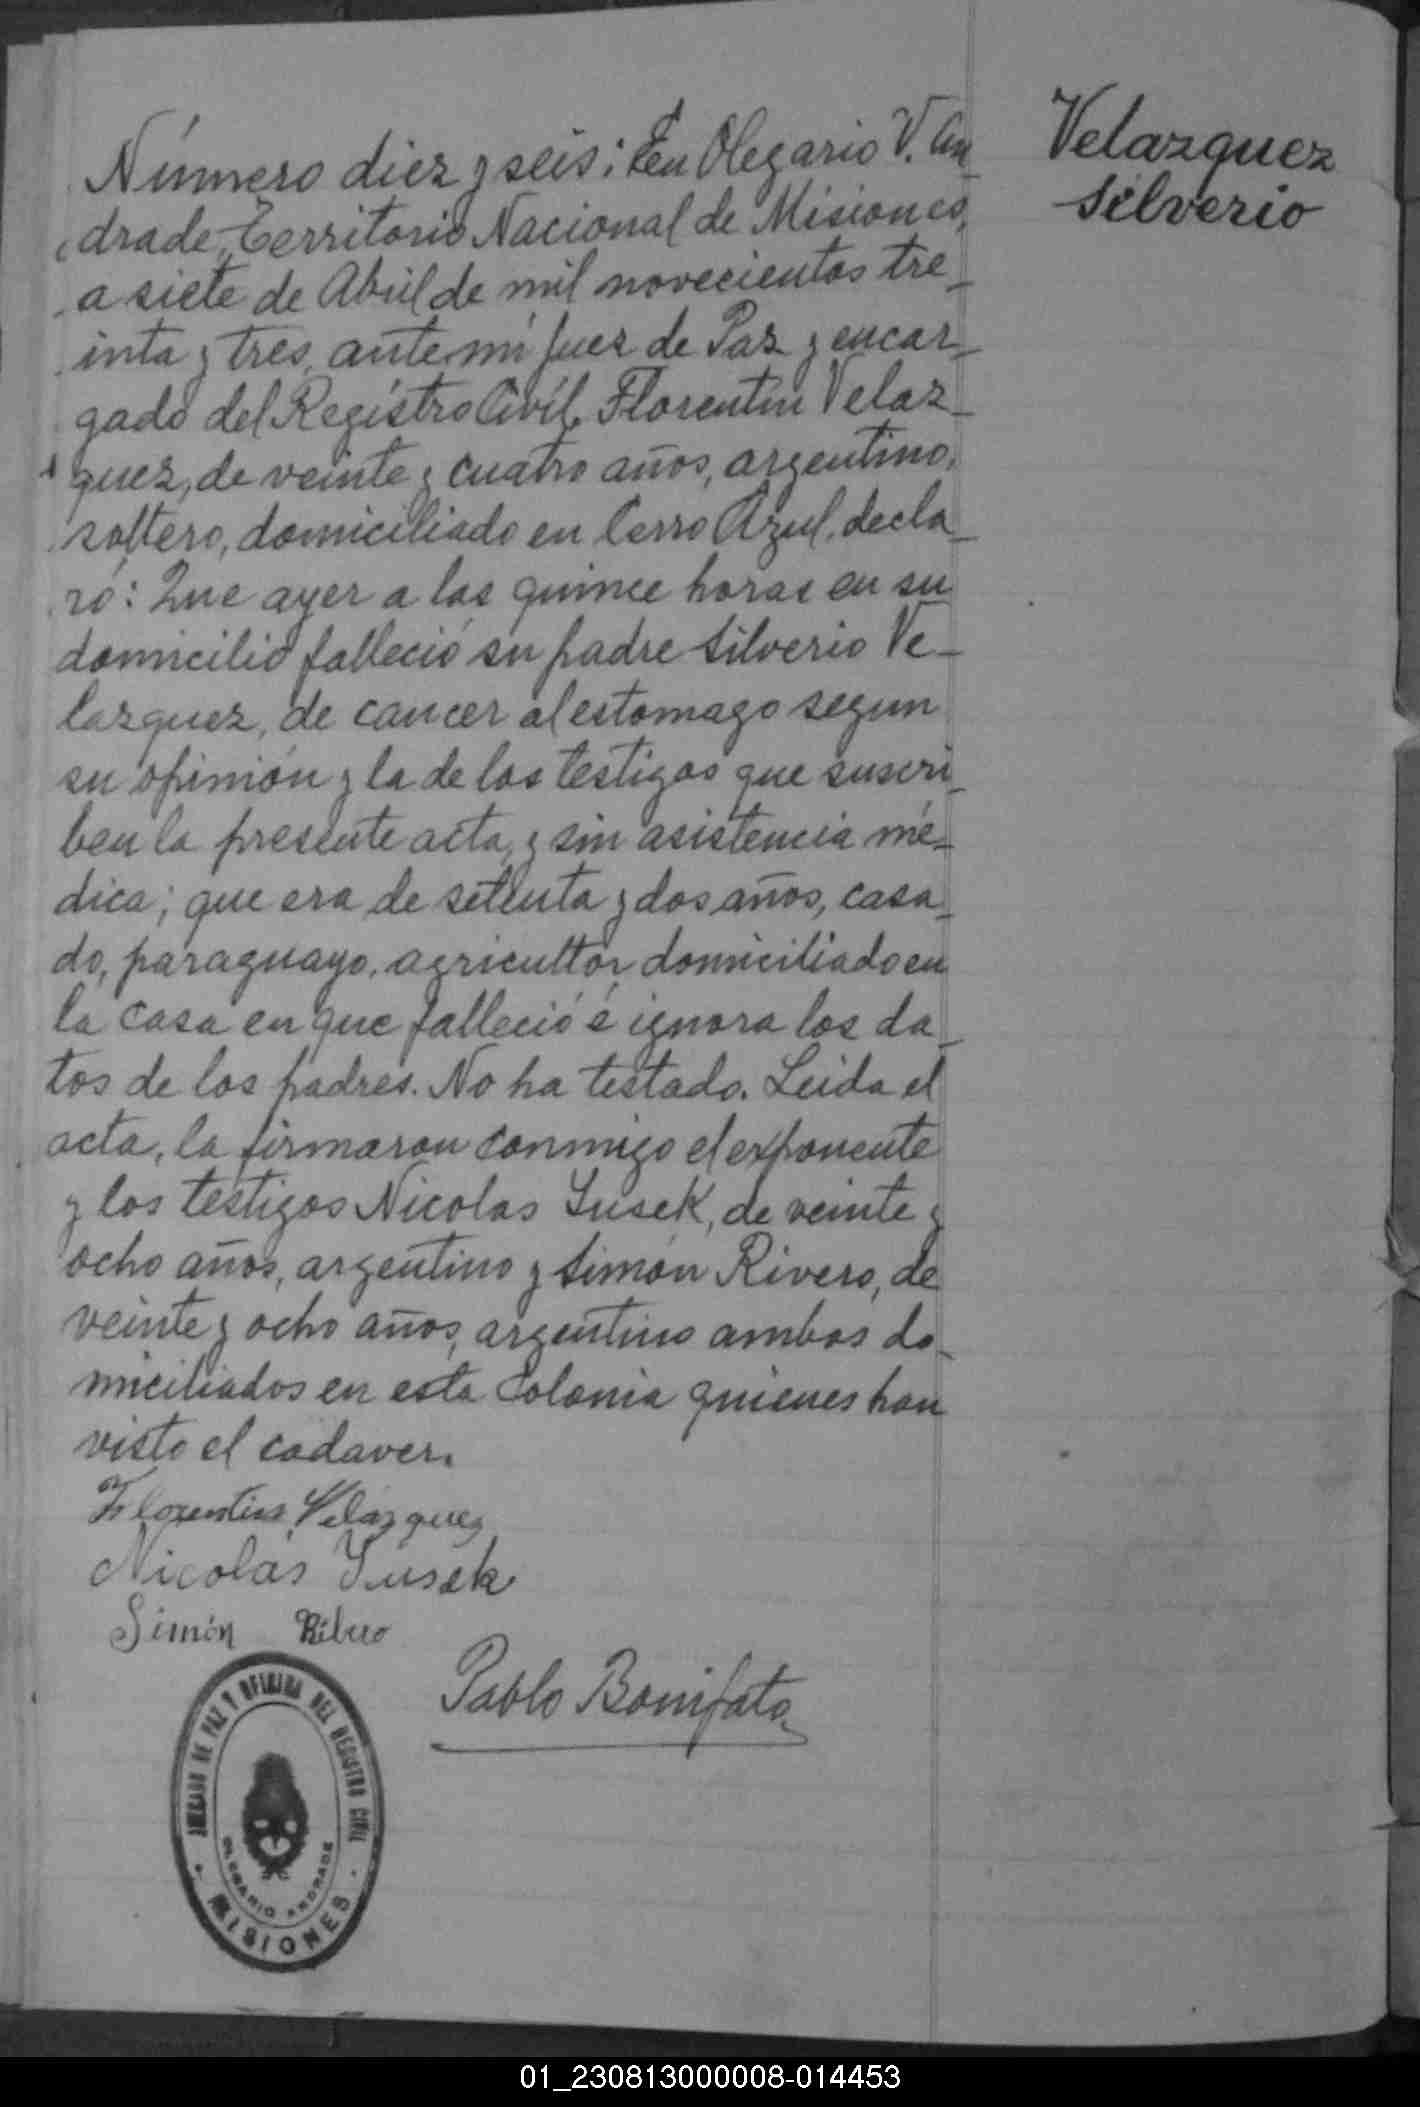 Velazquez
Silverio
Número diez y seis: En Olegario V. An
drade, Territorio Nacional de Misiones,
a siete de Abril de mil novecientos tre_
inta y tres, ante mi Juez de Paz y encar_
gado del Registro Civil, Florentin Velaz_
quez, de veinte y cuatro años, argentino,
soltero, domiciliado en Cerro Azul, decla_
ró: Que ayer a las quince horas en su
domicilio falleció su padre Silverio Ve_
lazquez, de cancer al estomago segun
su opinión y la de los testigos que suscri_
ben la presente acta, y sin asistencia mé_
dica; que era de setenta y dos años, casa_
do, paraguayo, agricultor, domiciliado en
la casa en que falleció é ignora los da_
tos de los padres. No ha testado. Leida el
acta, la firmaron conmigo el exponente
y los testigos Nicolas Susek, de veinte y
ocho años, argentino y Simón Rivero, de
veinte y ocho años, argentino ambos do_
miciliados en esta Colonia quienes han
visto el cadaver.
Florentin Velazquez
Nicolás Susek
Simón Ribero
Pablo Bonifato
JUZGADO DE PAZ Y OFICINA DEL REGISTRO CIVIL
OLEGARIO ANDRADE
MISIONES
01_230813000008-014453